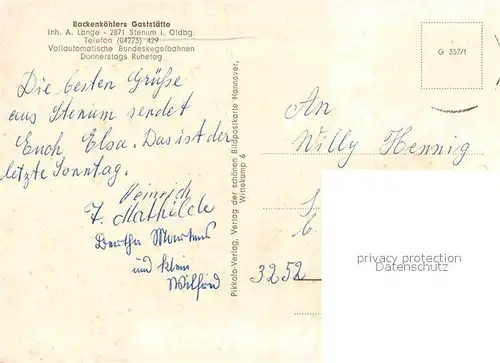 Backenköhlers Gaststätte
Inh. A. Lange - 2871 Stenum i. Oldbg.
Telefon (04223) 429
Vollautomatische Bundeskegelbahnen
Donnerstags Ruhetag
Die besten Grüße
aus Stenum sendet
Euch Elsa. Das ist der
letzte Sonntag.
Heinrich
F. Mathilde
Bertha Martens
und klein
Wilfried
Pikkolo-Verlag, Verlag der schönen Bildpostkarte Hannover,
Wittekamp 6
G 357/1
An
Willy Hennig
3252
privacy protection
Datenschutz